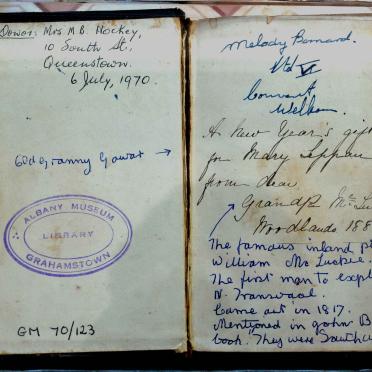 Donor: Mrs M.B. Hockey,
10 South St,
Queenstown.
6 July, 1970.
Granny Gowar →
ALBANY MUSEUM
LIBRARY
GRAHAMSTOWN
GM 70/123
Melody
Std VI
Convent
A New Year's gift
for Mary
from dear
Grandpa
Woodlands 188
The famous inland
William Mc Luckie.
The first man to expl
N. Transvaal.
Came out in 1817.
Mentioned in John B
book. "They were South